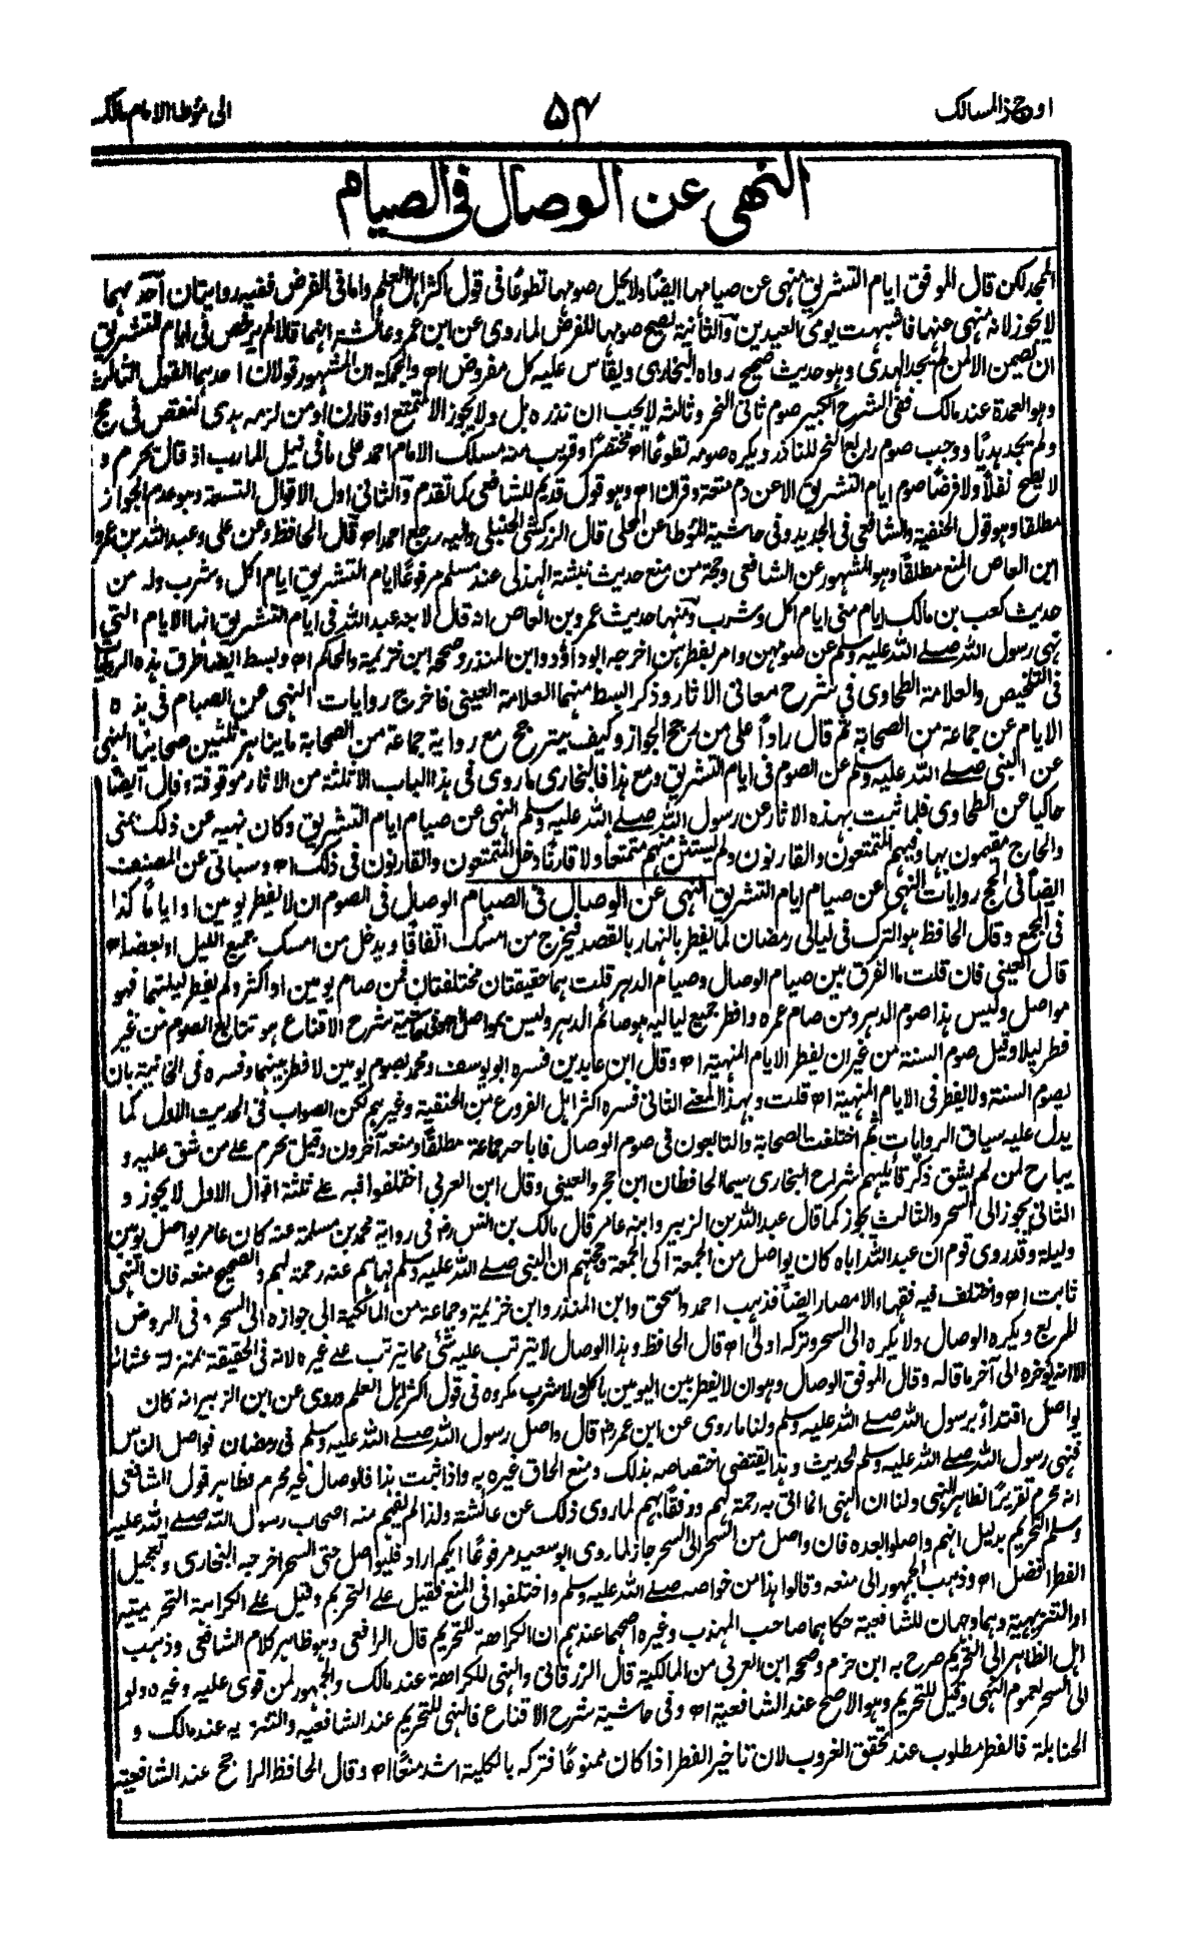 اوجز المسالك ۵۴ الى مؤطا الامام مالك
النهى عن الوصال فى الصيام
المجد لكن قال الموفق ايام التشريق منهى عن صيامها ايضا ولا يحل صومها تطوعًا فى قول اكثر اهل العلم واما فى الفرض ففيه روايتان احدهما
لا يجوز لانه منهى عنها فاشبهت يومى العيدين والثانية يصح صومها للفرض لما روى عن ابن عمر وعائشة انهما قالا لم يرخص فى ايام التشريق
ان يصمن الا لمن لم يجد الهدى وهو حديث صحيح رواه البخارى ويقاس عليه كل مفروض اھ والجملة ان المشهور قولان احدهما القول الثالث
وهو العمدة عند مالك ففى الشرح الكبير صوم ثانى النحر وثالثه لا يجب ان نذره بل ولا يجوز الا لمتمتع او قارن او من لزمه هدى لنقص فى حج
ولم يجد هديًا ووجب صوم رابع النحر للناذر ويكره صومه تطوعًا اھ مختصرًا وقريب منه مسلك الامام احمد على ما فى نيل المارب اذ قال يحرم و
لا يصح نفلاً ولا فرضًا صوم ايام التشريق الا عن دم متعة وقران اھ وهو قول قديم للشافعى كما تقدم والثانى اول الاقوال التسعة وهو عدم الجواز
مطلقا وهو قول الحنفية والشافعى فى الجديد وفى حاشية المؤطا عن المحلى قال الزركشى الحنبلى واليه رجع احمد اھ قال الحافظ وعن على وعبد الله بن عمرو
ابن العاص المنع مطلقًا وهو المشهور عن الشافعى وحجة من منع حديث نبيشة الهذلى عند مسلم مرفوعًا ايام التشريق ايام اكل وشرب وله من
حديث كعب بن مالك ايام منى ايام اكل وشرب ومنها حديث عمرو بن العاص انه قال لابنه عبد الله فى ايام التشريق انها الايام التى
نهى رسول الله صلے الله عليه وسلم عن صومهن وامر بفطرهن اخرجه ابو داؤد وابن المنذر وصححه ابن خزيمة والحاكم اھ وبسط ايضا طرق هذه الروايات
فى التلخيص والعلامة الطحاوى فى شرح معانى الاثار وذكر ابسط منهما العلامة العينى فاخرج روايات النهى عن الصيام فى هذه
الايام عن جماعة من الصحابة ثم قال رادًا على من رجح الجواز وكيف يترجح مع رواية جماعة من الصحابة ما يناهز ثلثين صحابيا النهى
عن النبى صلے الله عليه وسلم عن الصوم فى ايام التشريق ومع هذا فالبخارى ما روى فى هذا الباب الا ثلثة من الاثار موقوفة وقال ايضًا
حاكيا عن الطحاوى فلما ثبت بهذه الاثار عن رسول الله صلے الله عليه وسلم النهى عن صيام ايام التشريق وكان نهيه عن ذلك بمنى
والحاج مقيمون بها وفيهم المتمتعون والقارنون ولم يستثن منهم متمتعا ولا قارنًا دخل المتمتعون والقارنون فى ذلك اھ وسياتى عن المصنف
ايضًا فى الحج روايات النهى عن صيام ايام التشريق النهى عن الوصال فى الصيام الوصال فى الصوم ان لا يفطر يومين او اياما كذا
فى المجمع وقال الحافظ هو الترك فى ليالى رمضان لما يفطر بالنهار بالقصد فيخرج من امسك اتفاقًا ويدخل من امسك جميع الليل او بعضه اھ
قال العينى فان قلت ما الفرق بين صيام الوصال وصيام الدهر قلت هما حقيقتان مختلفتان فمن صام يومين او اكثر ولم يفطر ليلتهما فهو
مواصل وليس هذا صوم الدهر ومن صام عمره وافطر جميع لياليه هو صائم الدهر وليس بمواصل اھ وفى حاشية شرح الاقناع هو تتابع الصوم من غير
فطر ليلا وقيل صوم السنة من غير ان يفطر الايام المنهية اھ وقال ابن عابدين فسره ابو يوسف ومحمد بصوم يومين لا فطر بينهما وفسره فى الخانية بان
يصوم السنة ولا يفطر فى الايام المنهية اھ قلت وبهذا المعنے الثانى فسره اكثر اهل الفروع من الحنفية وغيرهم لكن الصواب فى الحديث الاول كما
يدل عليه سياق الروايات ثم اختلفت الصحابة والتابعون فى صوم الوصال فاباحه جماعة مطلقًا ومنعه آخرون وقيل يحرم علے من شق عليه و
يباح لمن لم يشق ذكر قائليهم شراح البخارى سيما الحافظان ابن حجر والعينى وقال ابن العربى اختلفوا فيه علے ثلثة اقوال الاول لا يجوز و
الثانى يجوز الى السحر والثالث يجوز كما قال عبد الله بن الزبير وابنه عامر قال مالك بن انس رضہ فى رواية محمد بن مسلمة عنه كان عامر يواصل يومين
وليلة وقد روى قوم ان عبد الله اباه كان يواصل من الجمعة الى الجمعة وحجتهم ان النبى صلے الله عليه وسلم نهاهم عنه رحمة لهم والصحيح منعه فان النهى
ثابت اھ واختلف فيه فقهاء الامصار ايضًا فذهب احمد واسحق وابن المنذر وابن خزيمة وجماعة من المالكية الى جوازه الى السحر وفى الروض
المربع ويكره الوصال ولا يكره الى السحر وتركه اولى اھ قال الحافظ وهذا الوصال لا يترتب عليه شئ مما يترتب علے غيره لانه فى الحقيقة بمنزلة عشائه
الا انه يؤخره الى آخر ما قاله وقال الموفق الوصال وهو ان لا يفطر بين اليومين باكل ولا شرب مكروه فى قول اكثر اهل العلم وروى عن ابن الزبير انه كان
يواصل اقتداءً برسول الله صلے الله عليه وسلم ولنا ما روى عن ابن عمر رضہ قال واصل رسول الله صلے الله عليه وسلم فى رمضان فواصل الناس
فنهى رسول الله صلے الله عليه وسلم الحديث وهذا يقتضى اختصاصه بذلك ومنع الحاق غيره به واذا ثبت هذا فالوصال غير محرم وظاهر قول الشافعى
انه محرم تقريرًا لظاهر النهى ولنا ان النهى انما اتى به رحمة لهم ورفقًا بهم لما روى ذلك عن عائشة ولذا لم يفهم منه اصحاب رسول الله صلے الله عليه
وسلم التحريم بدليل انهم واصلوا بعده فان واصل من السحر الى السحر جاز لما روى ابو سعيد مرفوعًا ايكم اراد فليواصل حتى السحر اخرجه البخارى وتعجيل
الفطر افضل اھ وذهب الجمهور الى منعه وقالوا هذا من خواصه صلے الله عليه وسلم واختلفوا فى المنع فقيل علے التحريم وقيل علے الكراهة التحريمية
او التنزيهية وهما وجهان للشافعية حكاهما صاحب المهذب وغيره اصحهما عندهم ان الكراهة للتحريم قال الرافعى وهو ظاهر كلام الشافعى وذهب
اهل الظاهر الى التحريم صرح به ابن حزم وصححه ابن العربى من المالكية قال الزرقانى والنهى للكراهة عند مالك والجمهور لمن قوى عليه وغيره ولو
الى السحر لعموم النهى وقيل للتحريم وهو الاصح عند الشافعية اھ وفى حاشية شرح الاقناع فالنهى للتحريم عند الشافعية والتنزيه عند مالك و
الحنابلة فالفطر مطلوب عند تحقق الغروب لان تاخير الفطر اذا كان ممنوعًا فتركه بالكلية اشد منعًا اھ وقال الحافظ الراجح عند الشافعية